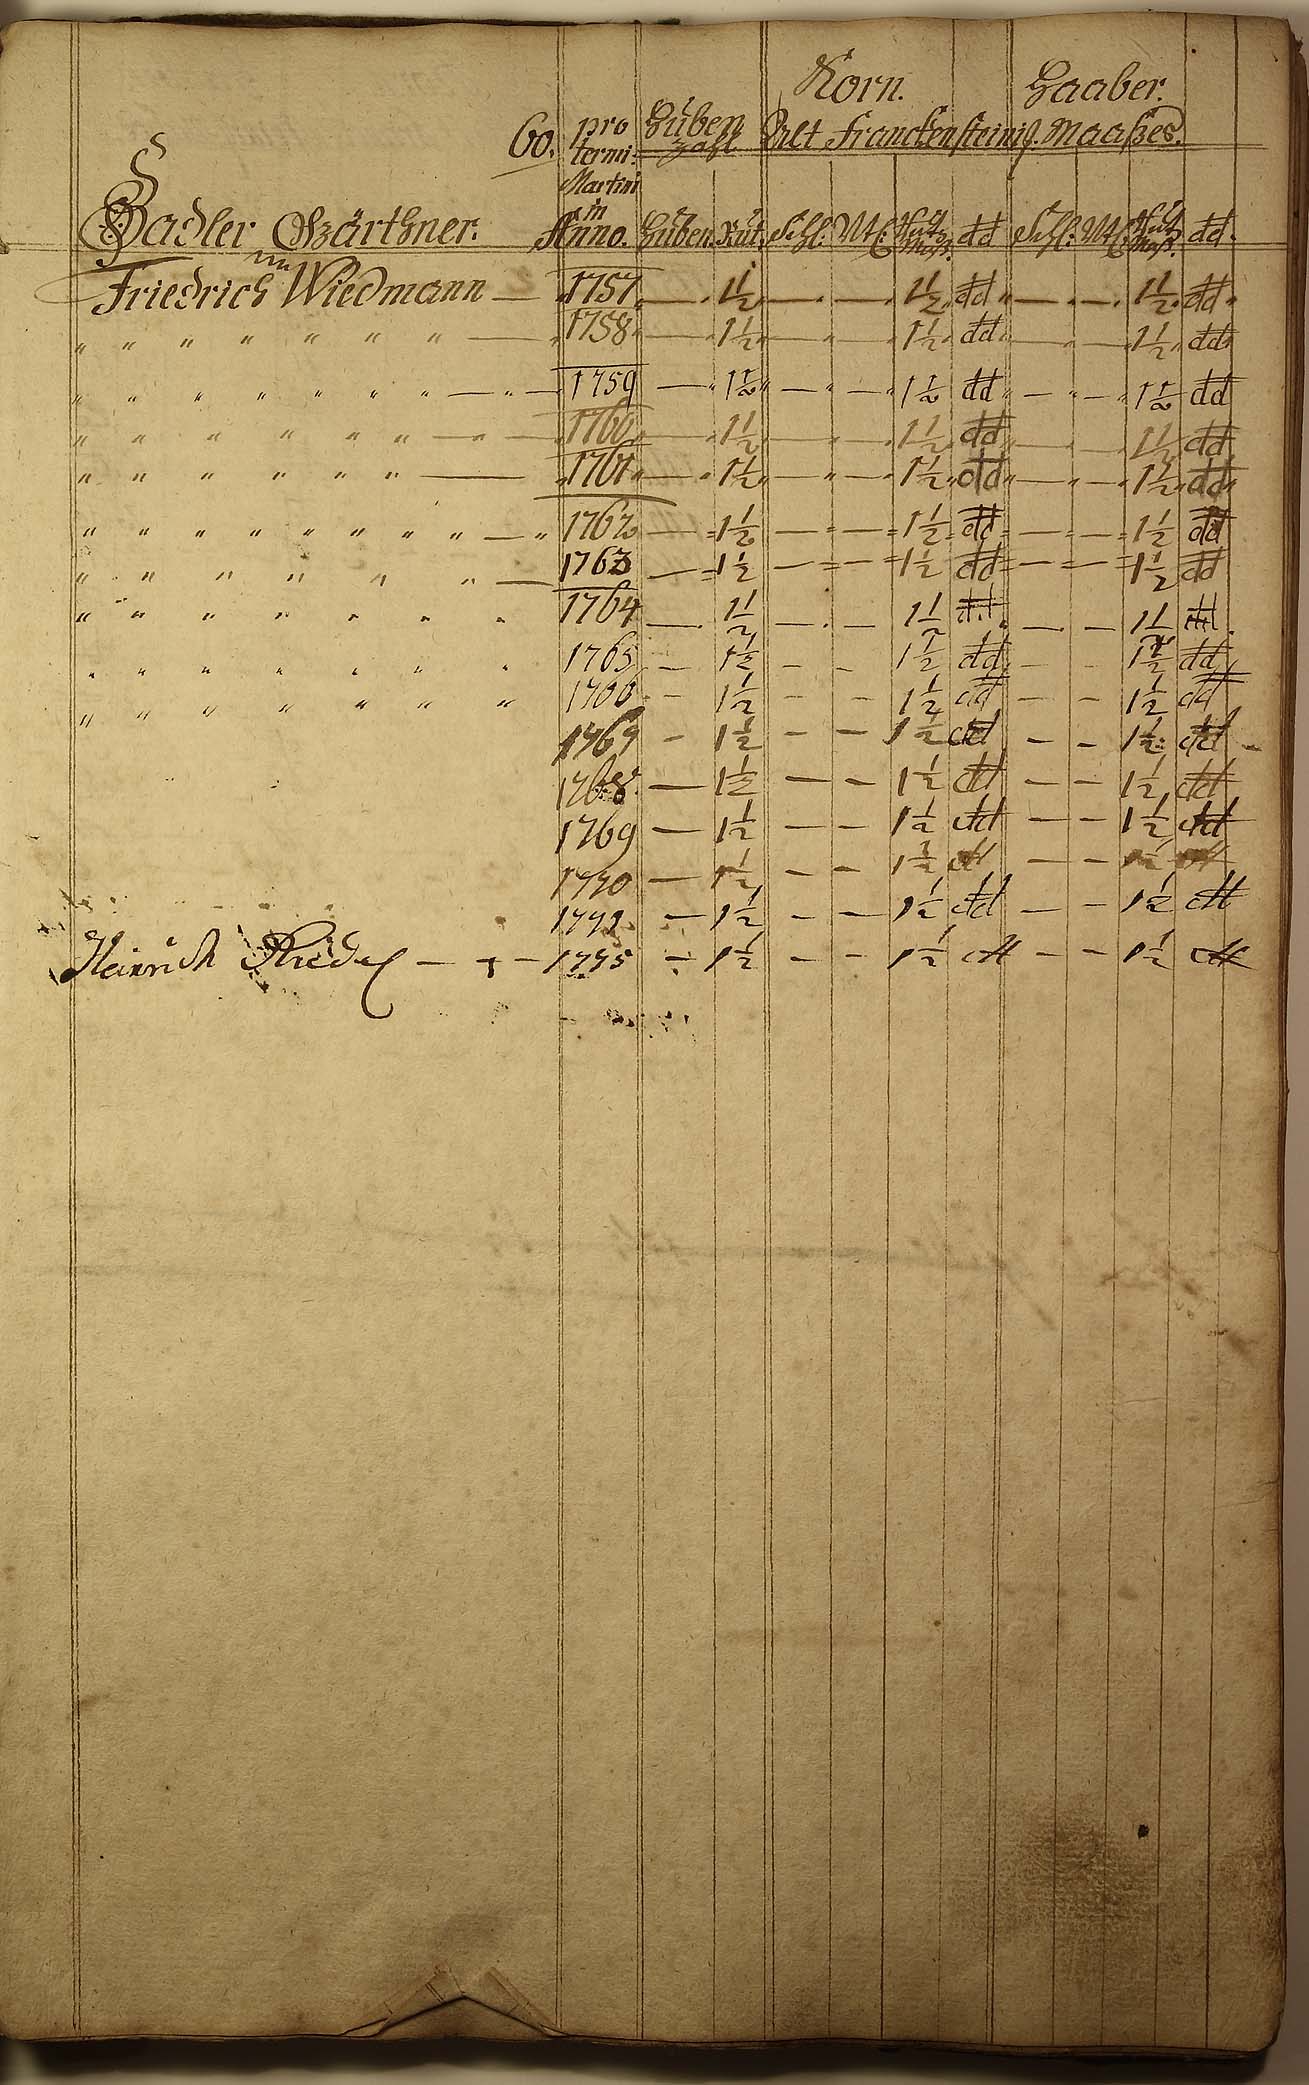 Korn. Haaber.
60. pro Hüben Alt Franckensteinis. Maaßes.
termi: Zahl
Martini
in
Sadler Gärthner. Anno. Hüben. Rut. Schl. Mtz. Maß. dd Schl. Mtz. Maß. dd.
Friedrich Wiedmann — 1757 — 1½ — — 1½ dd — — 1½ dd
" " " " " " " — 1758 — 1½ — — 1½ dd — — 1½ dd
" " " " " " " — " — 1759 — 1½ — " — 1½ dd — " — 1½ dd
" " " " " " — " — 1760 — 1½ — — 1½ dd — — 1½ dd
" " " " " " " — 1761 — 1½ — " — 1½ dd — " — 1½ dd
" " " " " " " " " — " 1762 — 1½ — — 1½ dd — — 1½ dd
" " " " " " — 1763 — 1½ — — 1½ dd — — 1½ dd
" " " " " " " " 1764 — 1½ — — 1½ dd — — 1½ dd
" " " " " " " " 1765 — 1½ — — 1½ dd — — 1½ dd
" " " " " " " 1766 — 1½ — — 1½ dd — — 1½ dd
1767 — 1½ — — 1½ dd — — 1½ dd
1768 — 1½ — — 1½ dd — — 1½ dd
1769 — 1½ — — 1½ dd — — 1½ dd
1770 — 1½ — — 1½ dd — — 1½ dd
— 1½ — — 1½ dd — — 1½ dd
Heinrich Riedel — — 1775 — 1½ — — 1½ dd — — 1½ dd